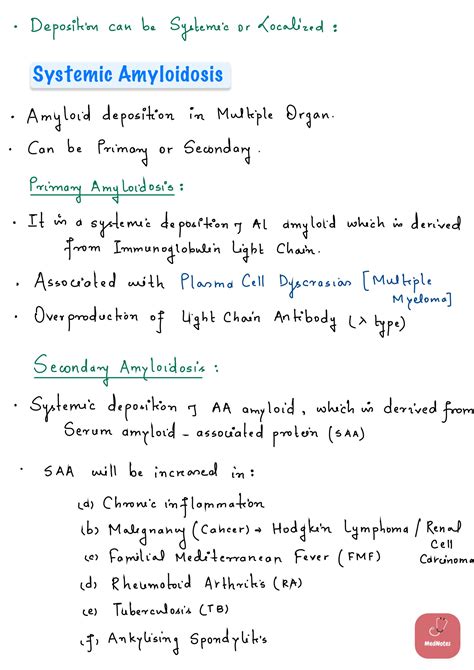 • Deposition can be Systemic or Localized :
Systemic Amyloidosis
• Amyloid deposition in Multiple Organ.
• Can be Primary or Secondary.
Primary Amyloidosis :
• It is a systemic deposition of AL amyloid which is derived
from Immunoglobulin Light Chain.
• Associated with Plasma Cell Dyscrasias [Multiple
Myeloma]
• Overproduction of Light Chain Antibody (λ type)
Secondary Amyloidosis :
• Systemic deposition of AA amyloid, which is derived from
Serum amyloid - associated protein (SAA)
• SAA will be increased in :
(a) Chronic inflammation
(b) Malignancy (Cancer) → Hodgkin Lymphoma / Renal
Cell
Carcinoma
(c) Familial Mediterranean Fever (FMF)
(d) Rheumatoid Arthritis (RA)
(e) Tuberculosis (TB)
(f) Ankylising Spondylitis
MedNotes